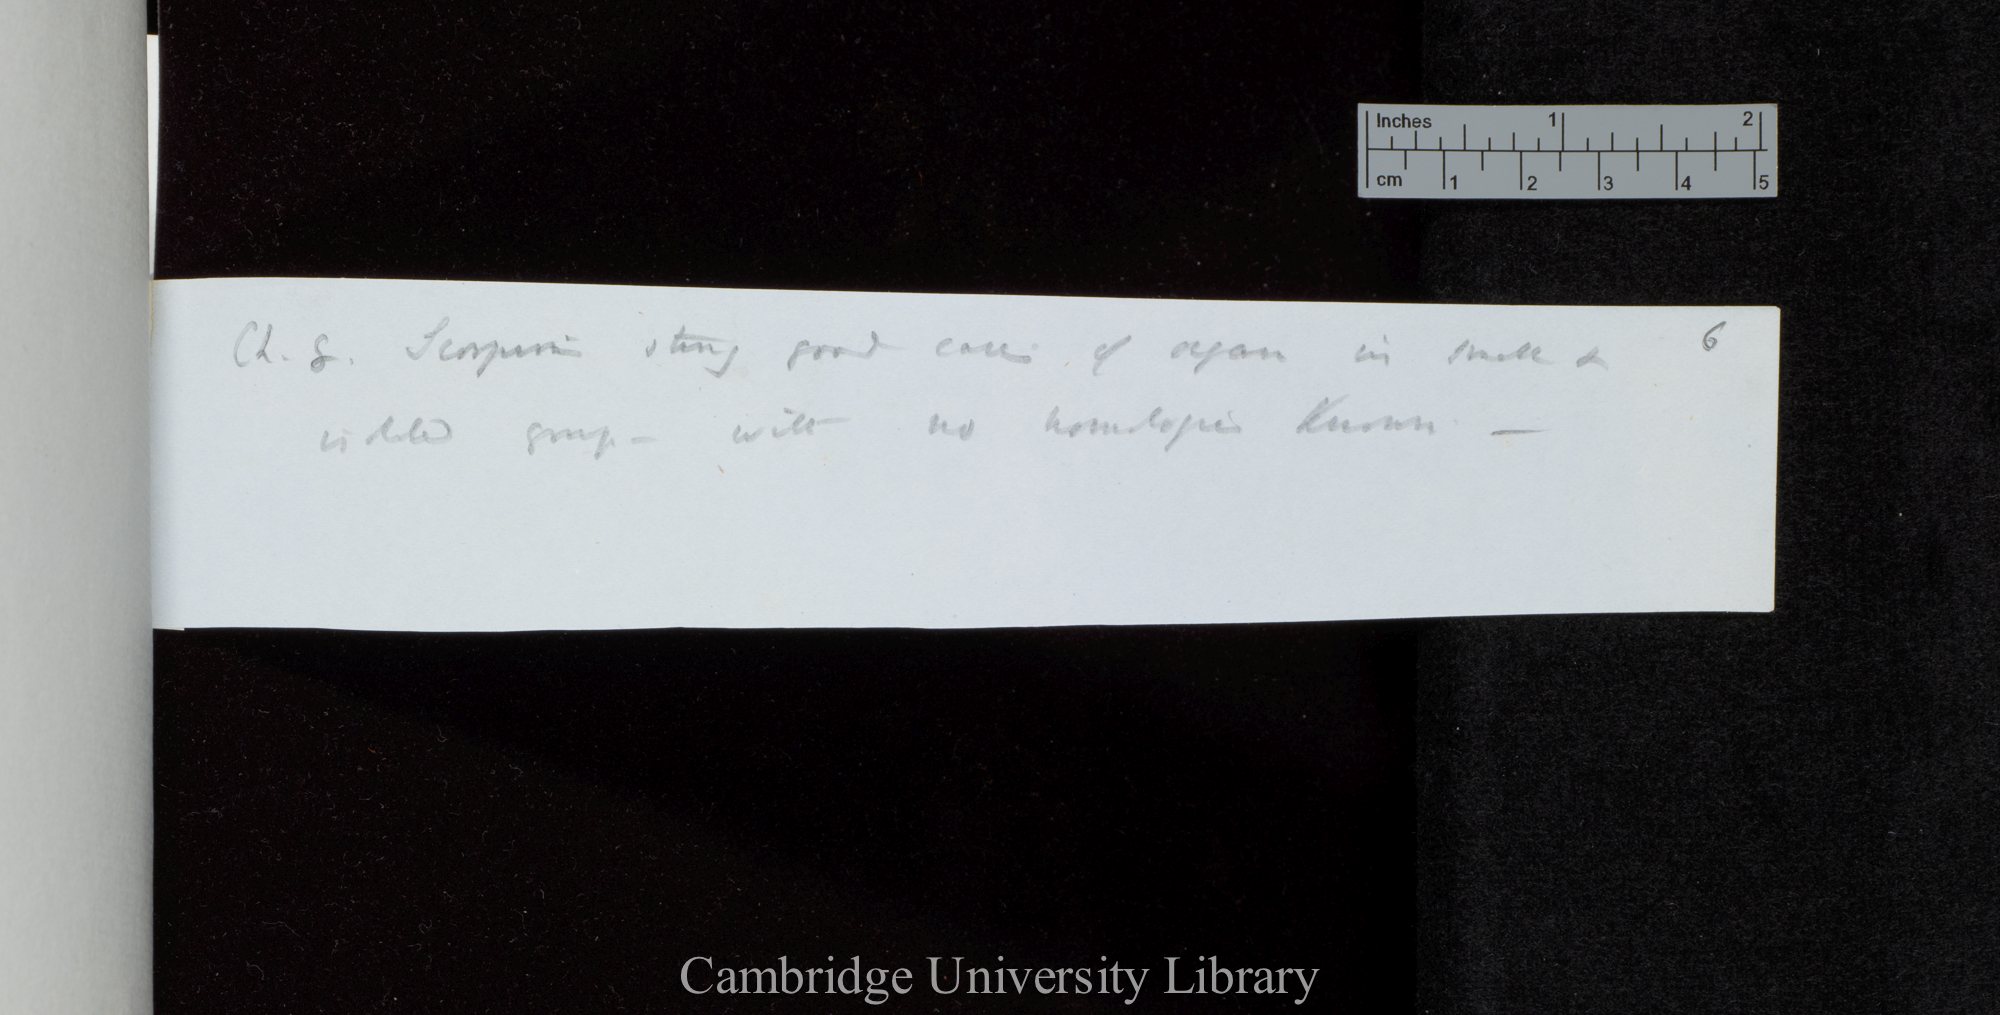 Inches 1 2
cm 1 2 3 4 5
Ch. 8. Scorpion sting good case of organ in small & 6
isolated group — with no homologies known —
Cambridge University Library